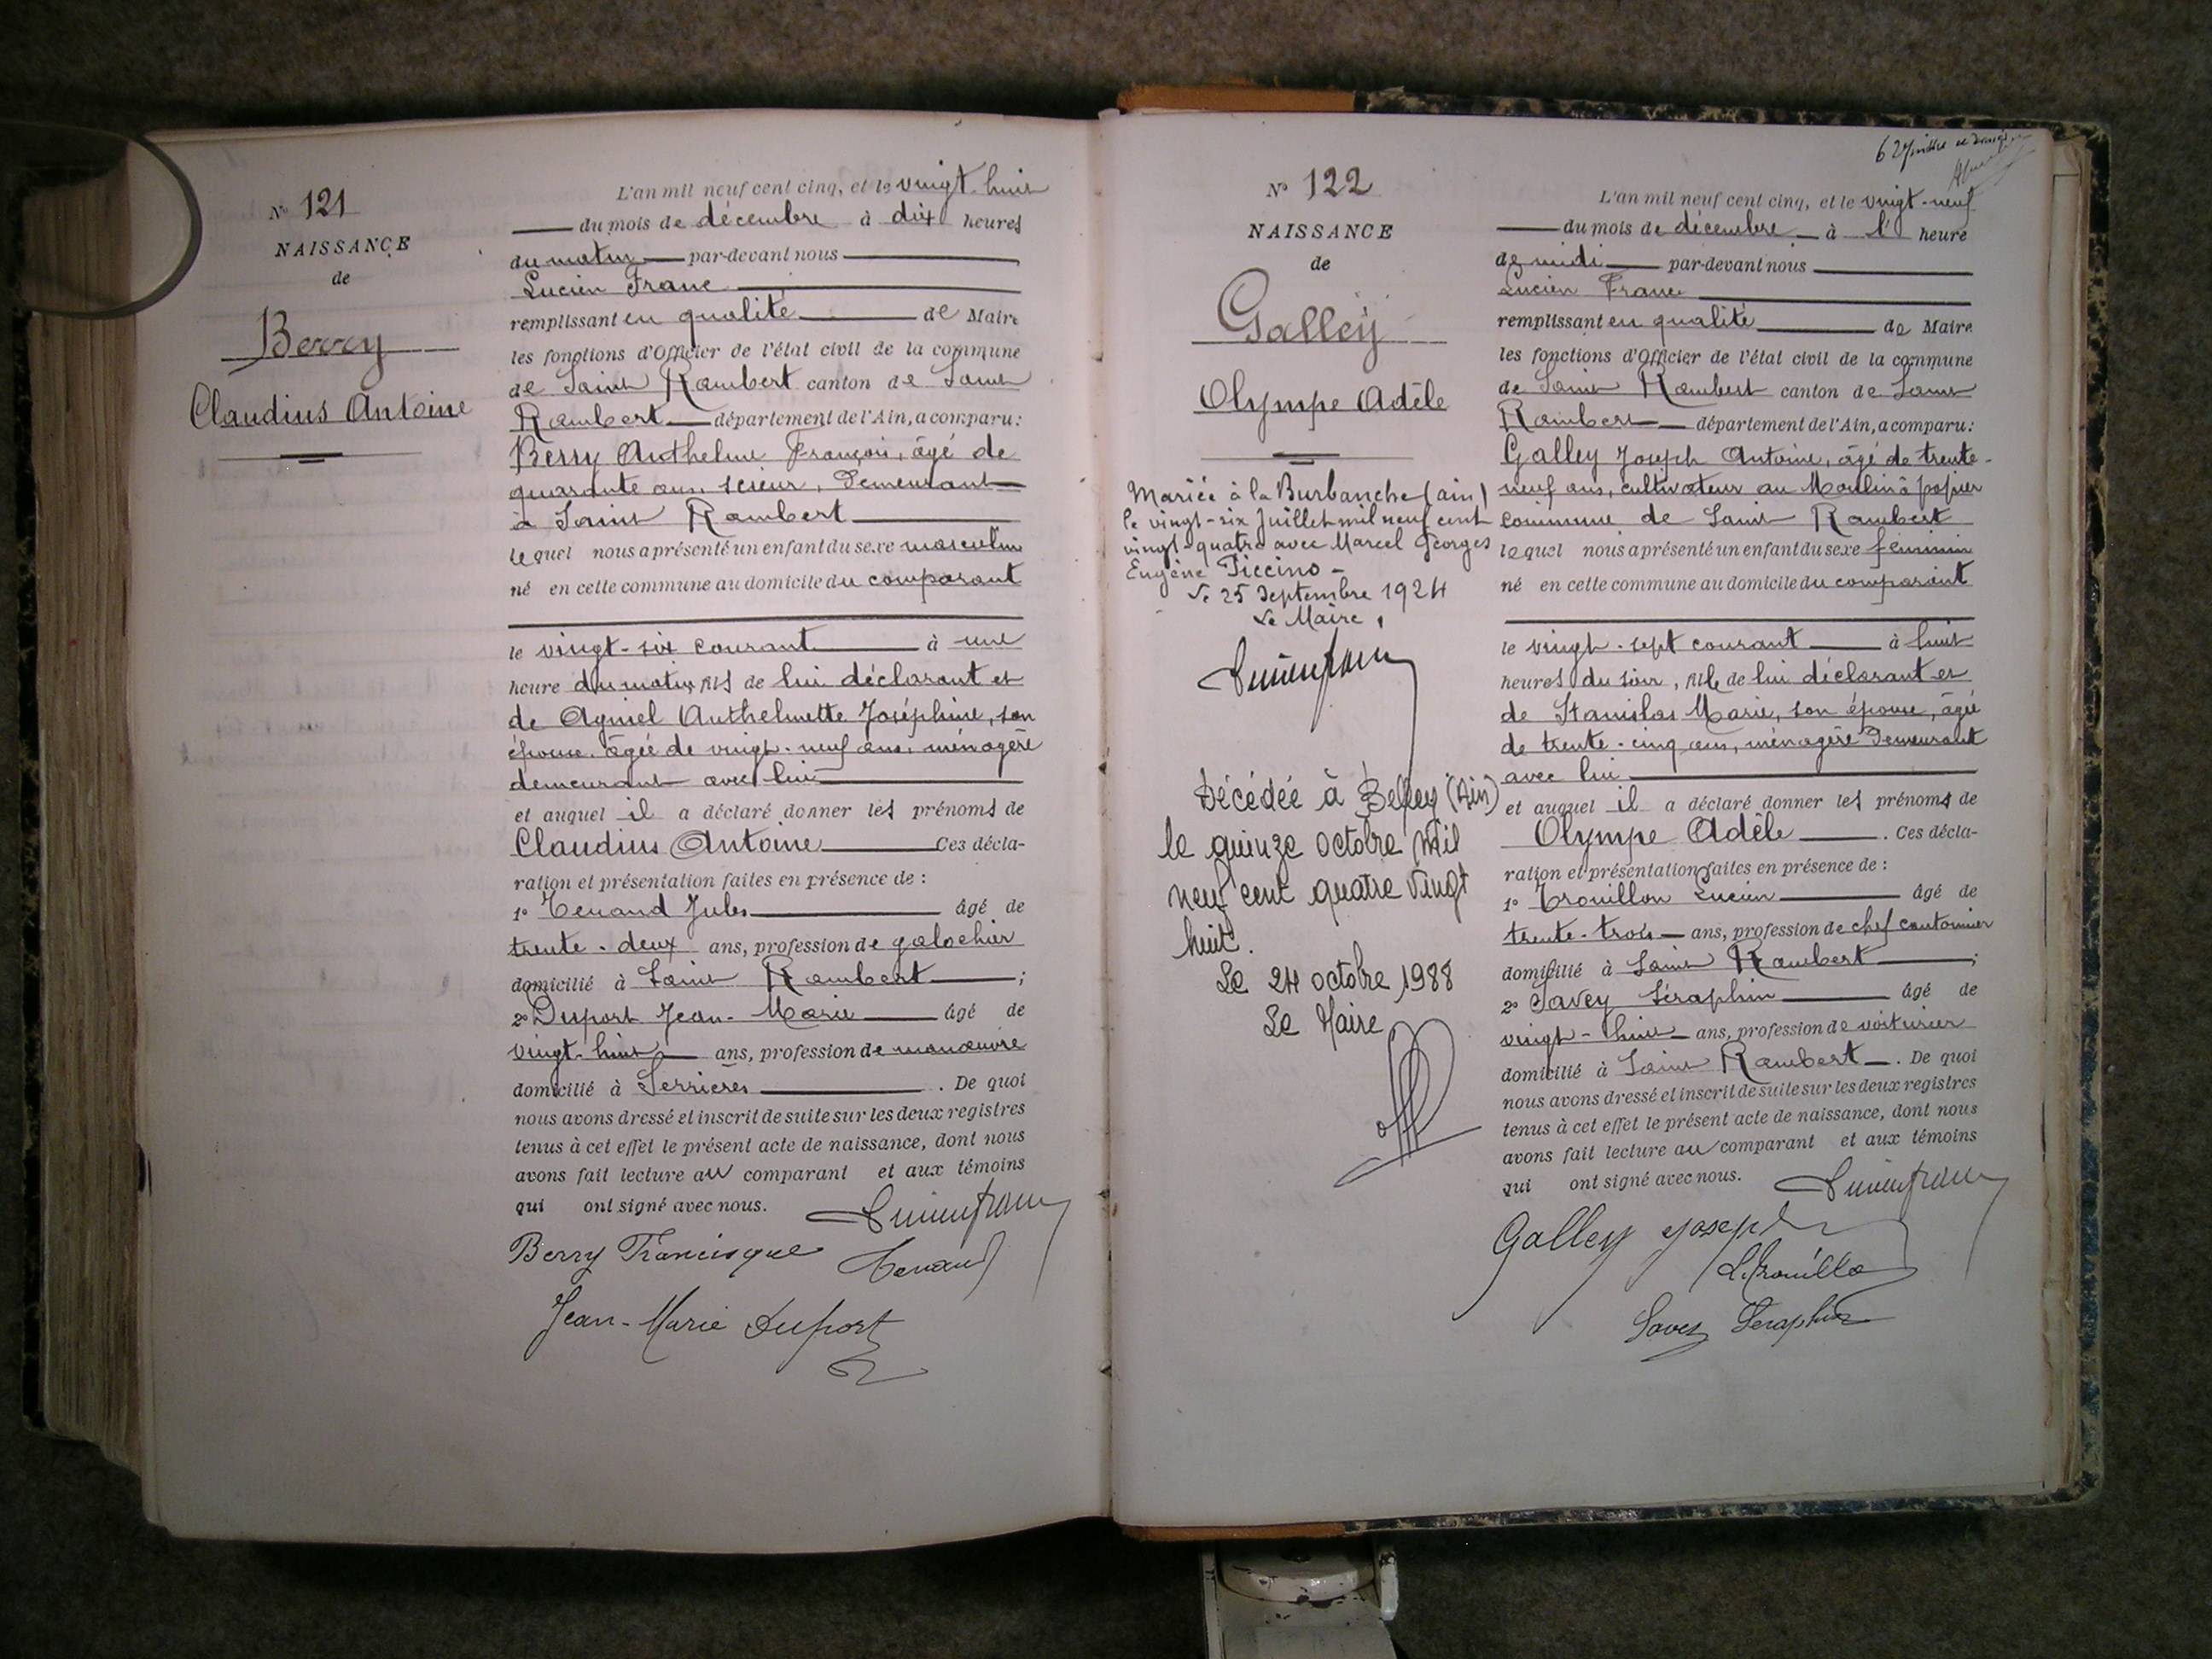 N° 121
NAISSANCE
de
Berry
Claudius Antoine
L'an mil neuf cent cinq, et le vingt-huit
du mois de décembre à dix heures
du matin par-devant nous
Lucien Franc
remplissant en qualité de Maire
les fonctions d'Officier de l'état civil de la commune
de Saint Rambert canton de Saint
Rambert département de l'Ain, a comparu:
Berry Anthelme François, âgé de
quarante ans, scieur, demeurant
à Saint Rambert
lequel nous a présenté un enfant du sexe masculin
né en cette commune au domicile du comparant
le vingt-six courant à une
heure du matin, fils de lui déclarant et
de Agniel Anthelmette Joséphine, son
épouse, âgée de vingt-neuf ans, ménagère
demeurant avec lui
et auquel il a déclaré donner les prénoms de
Claudius Antoine Ces décla-
ration et présentation faites en présence de :
1° Tenand Jules âgé de
trente-deux ans, profession de galochier
domicilié à Saint Rambert ;
2° Duport Jean-Marie âgé de
vingt-huit ans, profession de manœuvre
domicilié à Serrières . De quoi
nous avons dressé et inscrit de suite sur les deux registres
tenus à cet effet le présent acte de naissance, dont nous
avons fait lecture au comparant et aux témoins
qui ont signé avec nous. Lucien Franc
Berry Francisque Tenand
Jean-Marie Duport
N° 122
NAISSANCE
de
Galley
Olympe Adèle
Mariée à la Burbanche (ain)
le vingt-six Juillet mil neuf cent
vingt-quatre avec Marcel Georges
Eugène Piccino -
Le 25 Septembre 1924
Le Maire,
Lucien Franc
Décédée à Belley (Ain)
le quinze octobre mil
neuf cent quatre vingt
huit.
Le 24 octobre 1988
Le Maire
L'an mil neuf cent cinq, et le vingt-neuf
du mois de décembre à l' heure
de midi par-devant nous
Lucien Franc
remplissant en qualité de Maire
les fonctions d'Officier de l'état civil de la commune
de Saint Rambert canton de Saint
Rambert département de l'Ain, a comparu:
Galley Joseph Antoine, âgé de trente-
neuf ans, cultivateur au Moulin à papier
commune de Saint Rambert
lequel nous a présenté un enfant du sexe féminin
né en cette commune au domicile du comparant
le vingt-sept courant à huit
heures du soir, fille de lui déclarant et
de Stanislas Marie, son épouse, âgée
de trente-cinq ans, ménagère demeurant
avec lui
et auquel il a déclaré donner les prénoms de
Olympe Adèle . Ces décla-
ration et présentation faites en présence de :
1° Trouillon Lucien âgé de
trente-trois ans, profession de chef cantonnier
domicilié à Saint Rambert ;
2° Savey Séraphin âgé de
vingt-huit ans, profession de voiturier
domicilié à Saint Rambert . De quoi
nous avons dressé et inscrit de suite sur les deux registres
tenus à cet effet le présent acte de naissance, dont nous
avons fait lecture au comparant et aux témoins
qui ont signé avec nous. Lucien Franc
Galley Joseph
L. Trouillo
Savey Seraphin